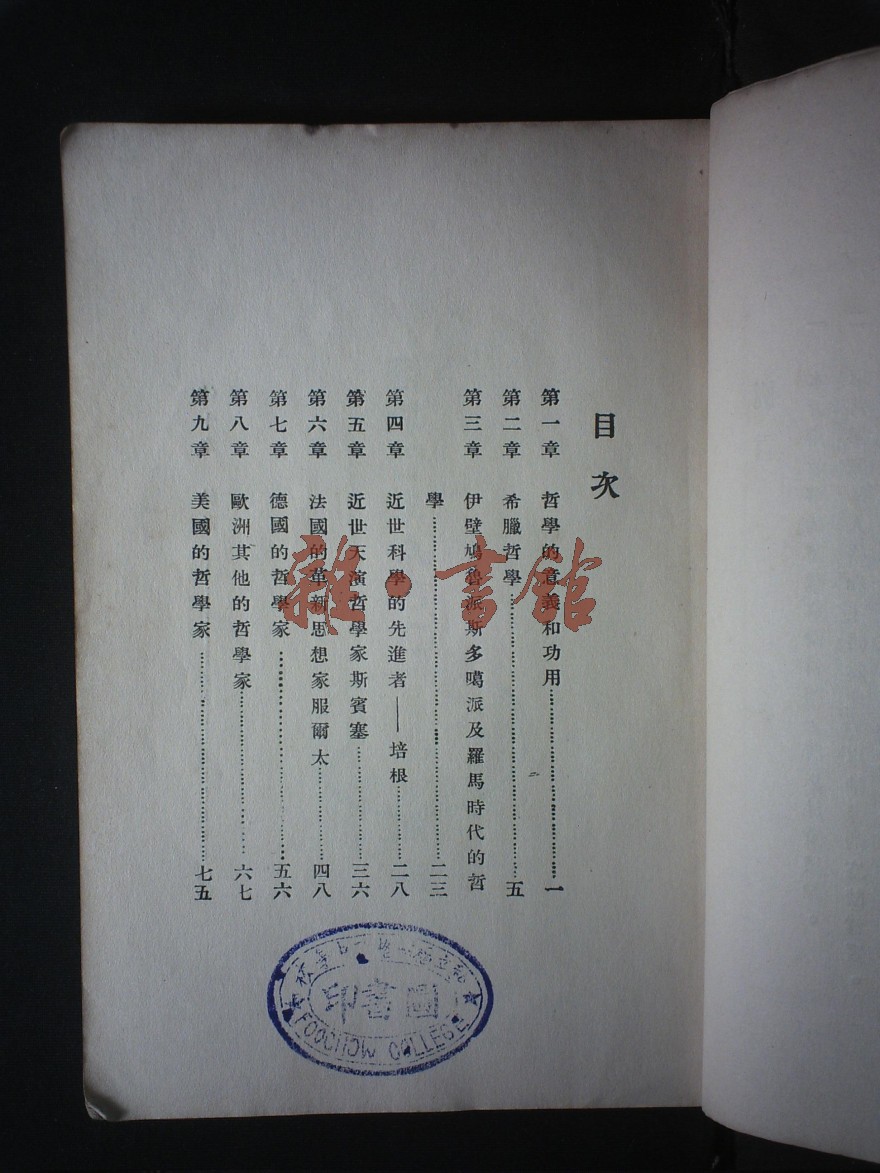 目次
第一章 哲學的意義和功用……一
第二章 希臘哲學……五
第三章 伊壁鳩魯派斯多噶派及羅馬時代的哲
學……二三
第四章 近世科學的先進者——培根……二八
第五章 近世天演哲學家斯賓塞……三六
第六章 法國的革新思想家服爾太……四八
第七章 德國的哲學家……五六
第八章 歐洲其他的哲學家……六七
第九章 美國的哲學家……七五
雜·書館
圖書印
FOOCHOW COLLEGE